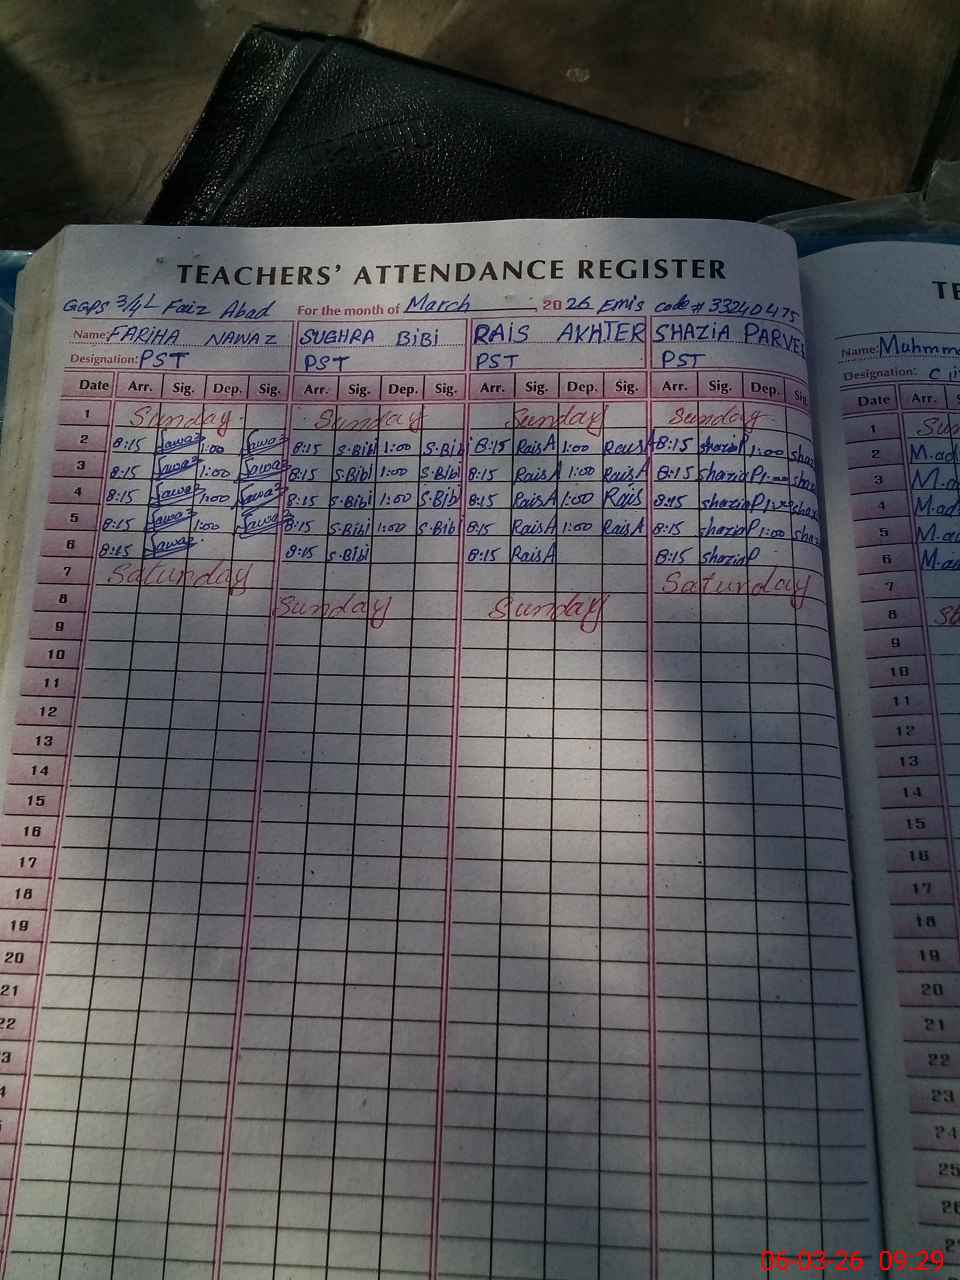 TEACHERS' ATTENDANCE REGISTER
GGPS 3/4L Faiz Abad For the month of March 2026 Emis code # 33240475
Name: FARIHA NAWAZ SUGHRA BiBi RAIS AKHTER SHAZIA PARVE
Designation: PST PST PST PST
Date Arr. Sig. Dep. Sig. Arr. Sig. Dep. Sig. Arr. Sig. Dep. Sig. Arr. Sig. Dep. Sig.
1 Sunday Sunday Sunday Sunday
2 8:15 Nawaz 1:00 Nawaz 8:15 S.Bibi 1:00 S.Bibi 8:15 Rais A 1:00 Rais A 8:15 shazia P 1:00 shaz
3 8:15 Nawaz 1:00 Nawaz 8:15 S.Bibi 1:00 S.Bibi 8:15 Rais A 1:00 Rais A 8:15 shazia P 1:00 shaz
4 8:15 Nawaz 1:00 Nawaz 8:15 S.Bibi 1:00 S.Bibi 8:15 Rais A 1:00 Rais 8:15 shazia P shaz
5 8:15 Nawaz 1:00 Nawaz 8:15 S.Bibi 1:00 S.Bibi 8:15 Rais A 1:00 Rais A 8:15 shazia P 1:00 shaz
6 8:15 Nawaz 8:15 S.Bibi 8:15 Rais A 8:15 shazia P
7 Saturday Saturday
8 Sunday Sunday
9
10
11
12
13
14
15
16
17
18
19
20
21
22
3
4
TE
Name: Muhmm
Designation:
Date Arr.
1 Sun
2 M.ad
3 M.a
4 M.ad
5 M.a
6 M.a
7
8
9
10
11
12
13
14
15
16
17
18
19
20
21
22
23
24
25
26
2
06-03-26 09:29